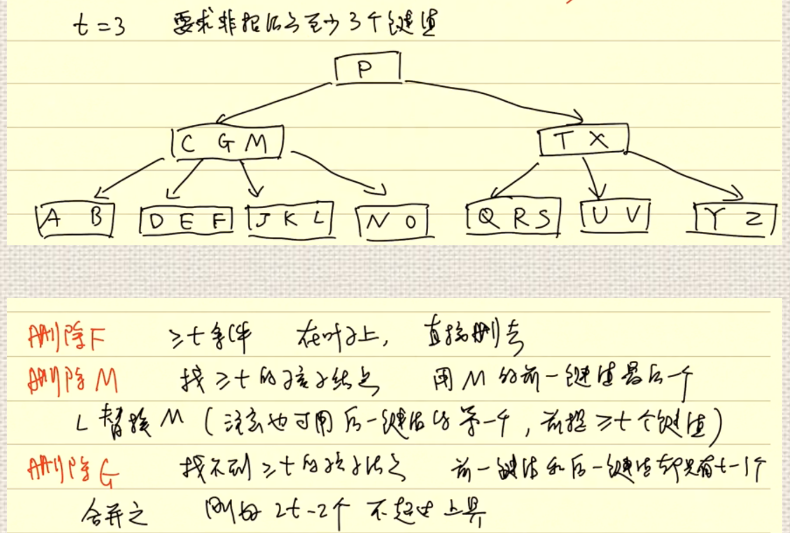 t=3 要求非根结点至少3个键值
P
C G M T X
A B D E F J K L N O Q R S U V Y Z
删除F ≥t条件 在叶子上, 直接删去
删除M 找≥t的孩子结点 用M的前一键值最后一个
L替换M (注意也可用后一键值的第一个, 前提≥t个键值)
删除G 找不到≥t的孩子结点 前一键值和后一键值都只有t-1个
合并之 刚好2t-2个 不超出上界